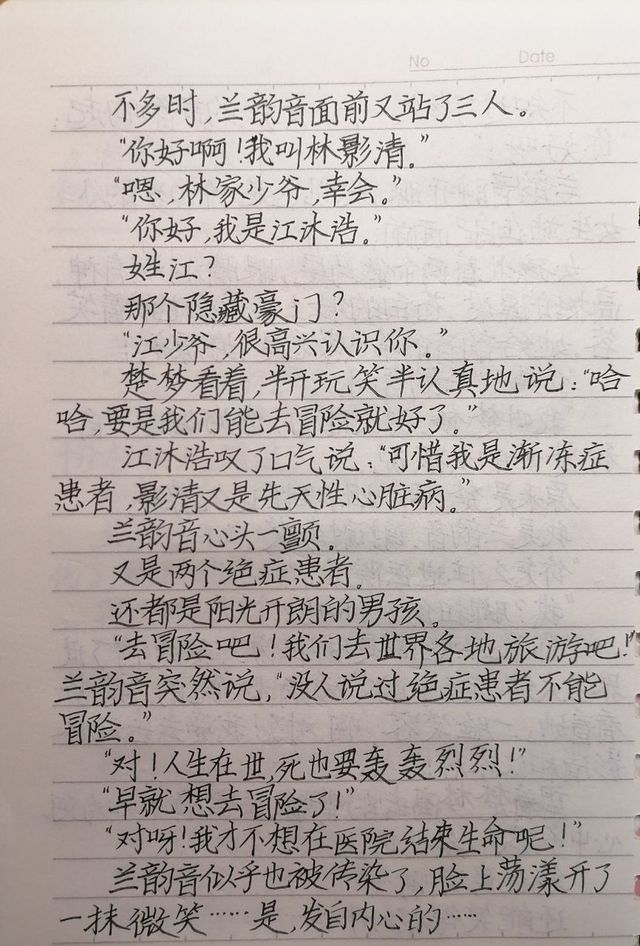 No Date
不多时，兰韵音面前又站了三人。
“你好啊！我叫林影清。”
“嗯，林家少爷，幸会。”
“你好，我是江沐浩。”
姓江？
那个隐藏豪门？
“江少爷，很高兴认识你。”
楚梦看着，半开玩笑半认真地说：“哈
哈，要是我们能去冒险就好了。”
江沐浩叹了口气说：“可惜我是渐冻症
患者，影清又是先天性心脏病。”
兰韵音心头一颤。
又是两个绝症患者。
还都是阳光开朗的男孩。
“去冒险吧！我们去世界各地旅游吧！”
兰韵音突然说，“没人说过绝症患者不能
冒险。”
“对！人生在世，死也要轰轰烈烈！”
“早就想去冒险了！”
“对呀！我才不想在医院结束生命呢！”
兰韵音似乎也被传染了，脸上荡漾开了
一抹微笑……是，发自内心的……